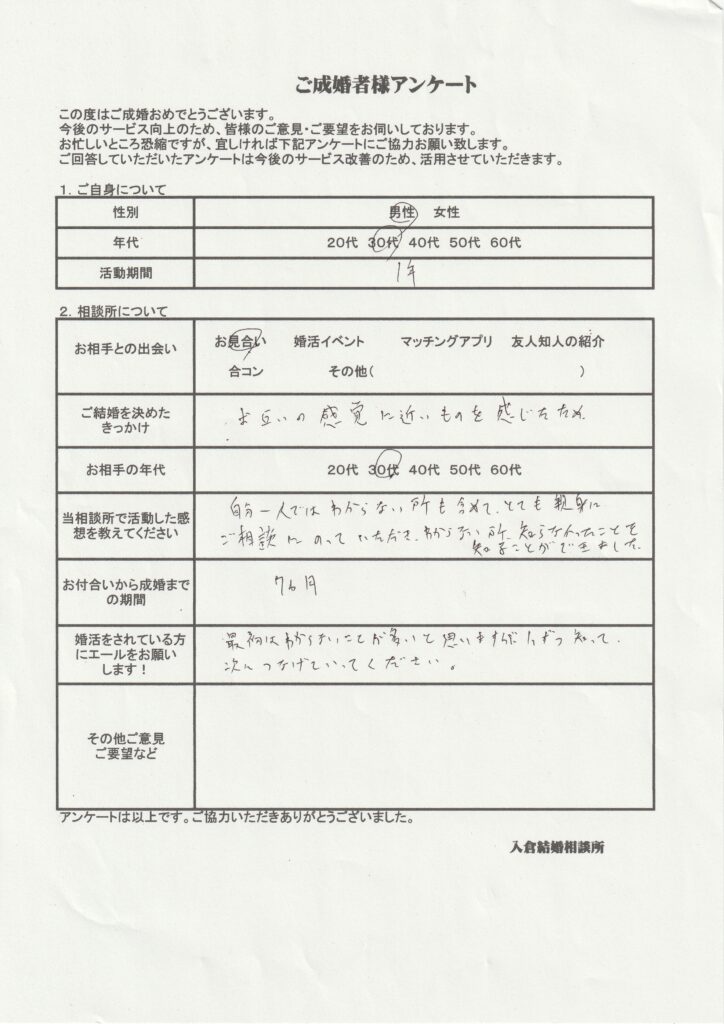 ご成婚者様アンケート
この度はご成婚おめでとうございます。
今後のサービス向上のため、皆様のご意見・ご要望をお伺いしております。
お忙しいところ恐縮ですが、宜しければ下記アンケートにご協力お願い致します。
ご回答していただいたアンケートは今後のサービス改善のため、活用させていただきます。
1. ご自身について
性別 男性 女性
年代 20代 30代 40代 50代 60代
活動期間 1年
2. 相談所について
お相手との出会い お見合い 婚活イベント マッチングアプリ 友人知人の紹介
合コン その他( )
ご結婚を決めた
きっかけ
お互いの感覚に近いものを感じたため
お相手の年代 20代 30代 40代 50代 60代
当相談所で活動した感
想を教えてください
自分一人ではわからない所も含めて、とても親身に
ご相談にのっていただき、わからない所、知らなかったことを
知ることができました。
お付合いから成婚まで
の期間
7ヶ月
婚活をされている方
にエールをお願い
します!
最初はわからないことが多いと思いますが、1つずつ知って、
次につなげていってください。
その他ご意見
ご要望など
アンケートは以上です。ご協力いただきありがとうございました。
入倉結婚相談所